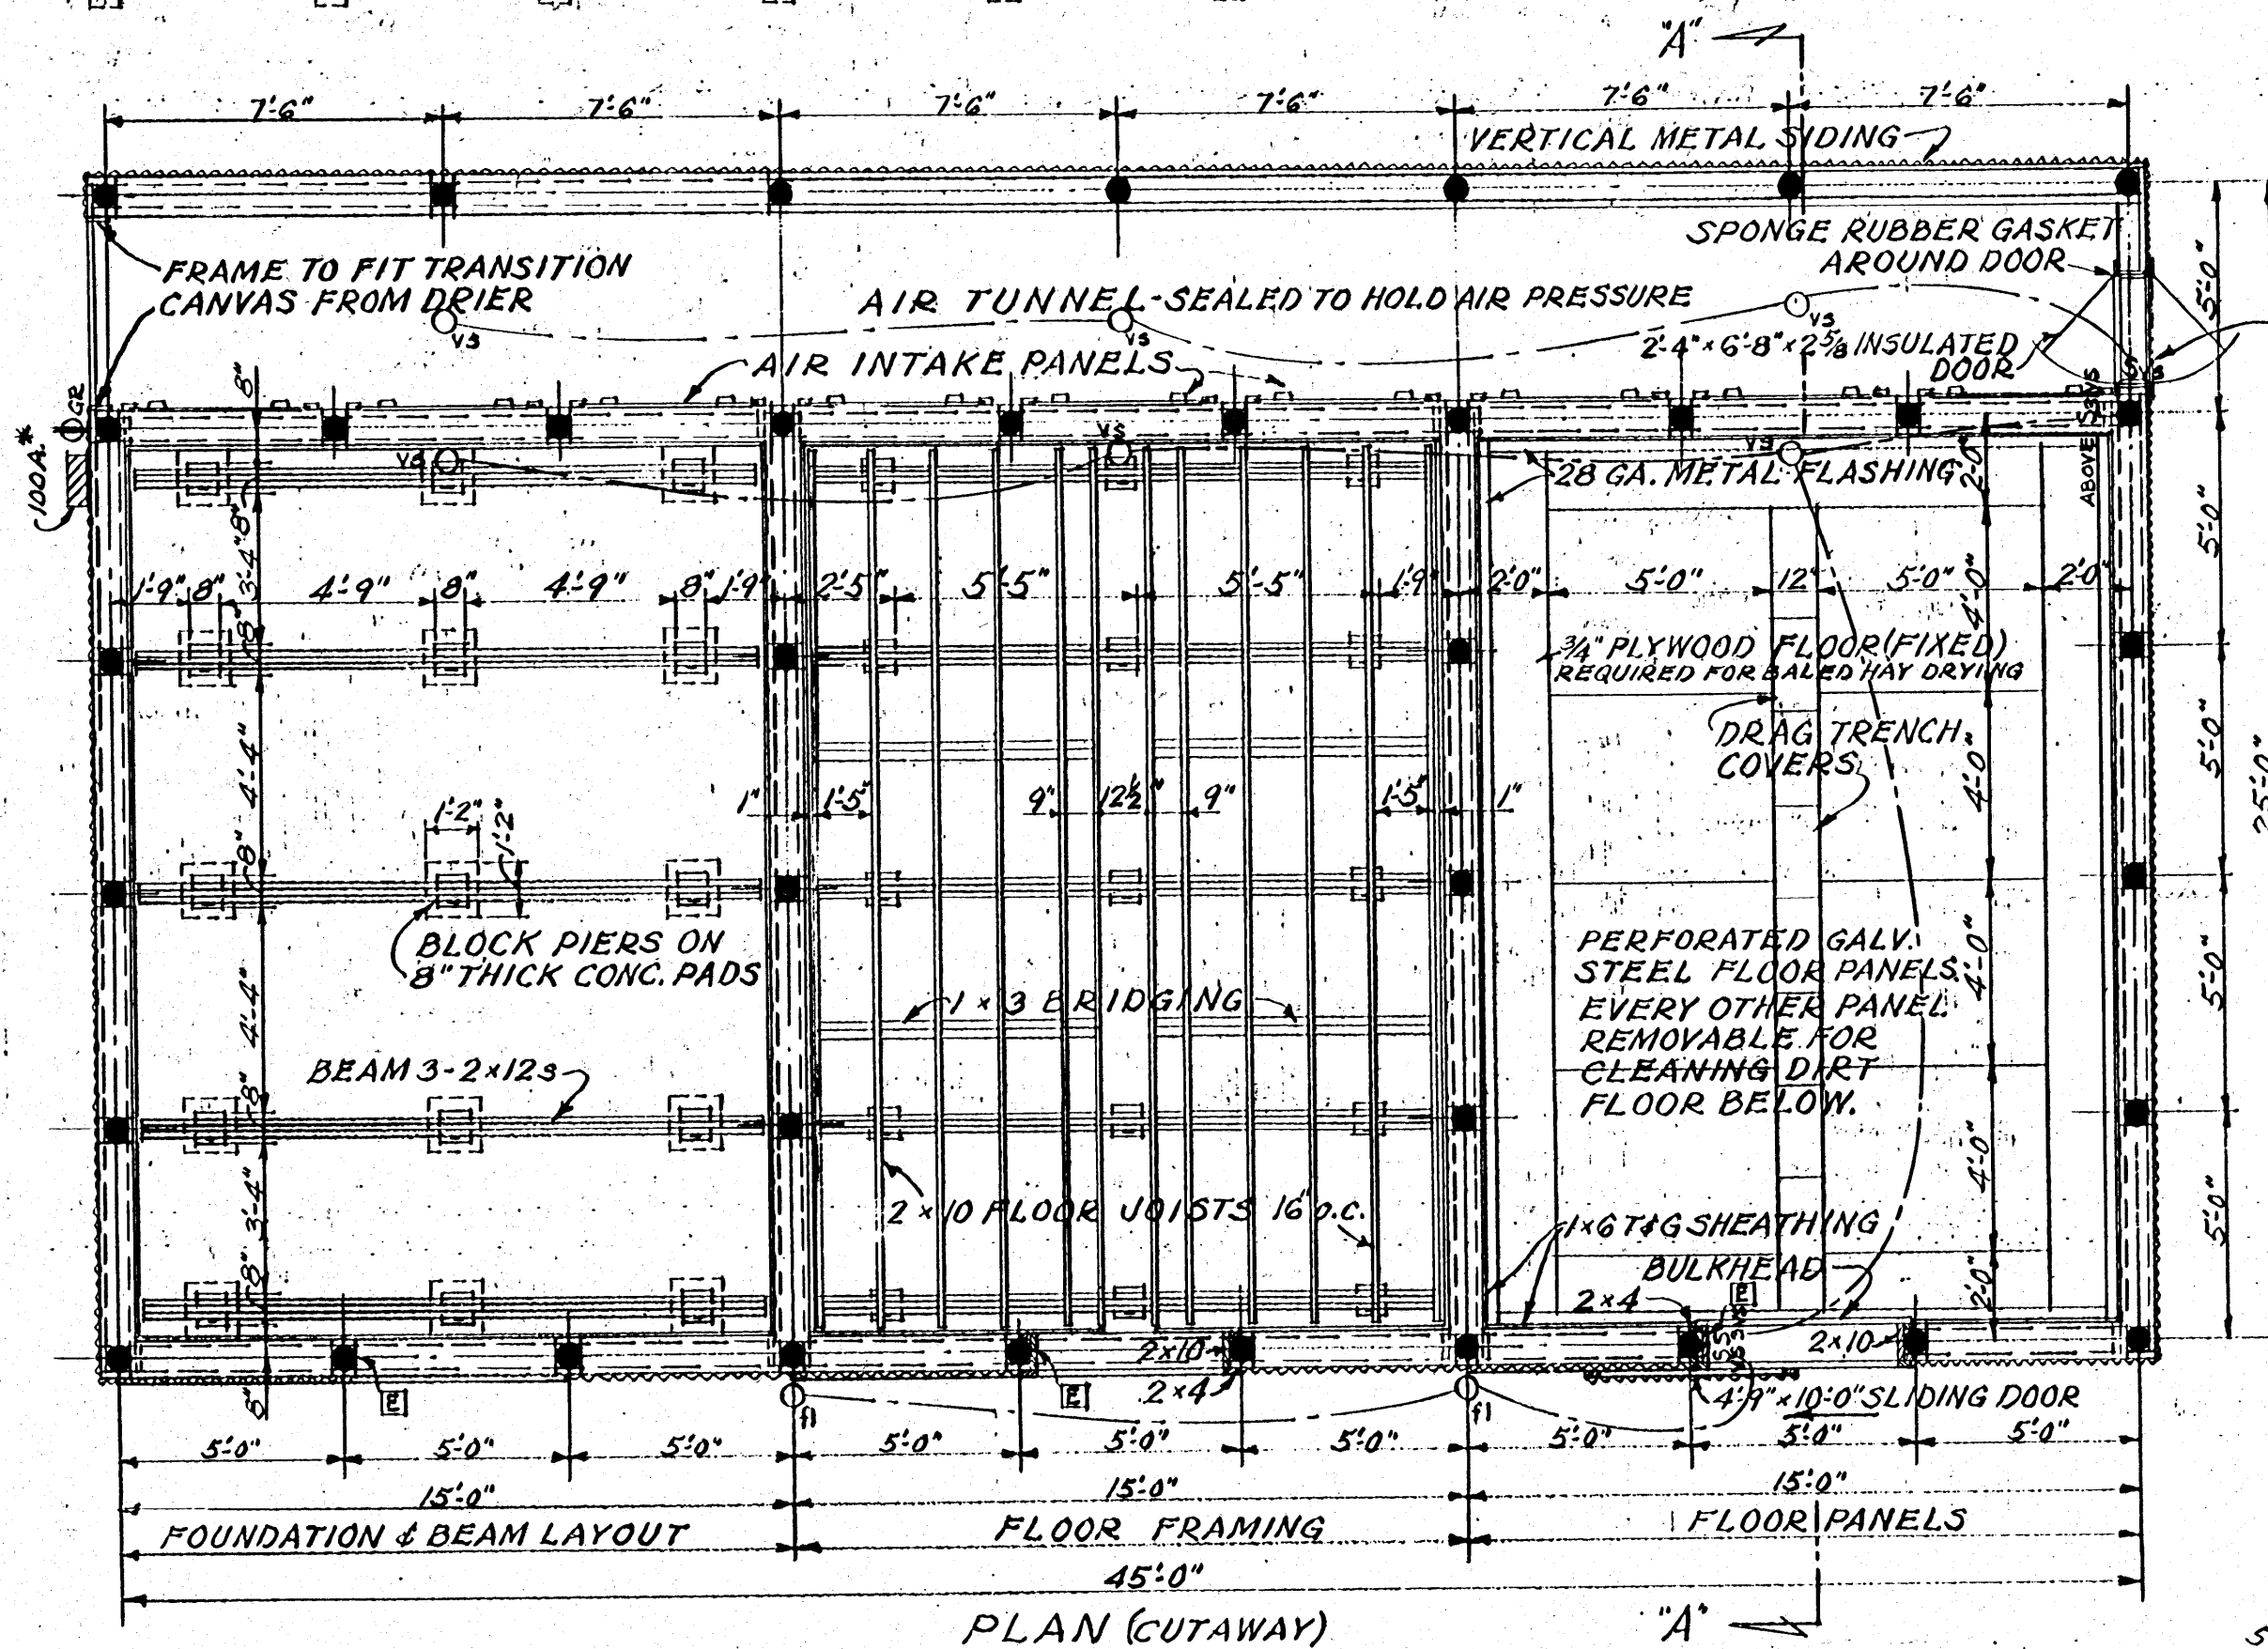 "A"
7'-6" 7'-6" 7'-6" 7'-6" 7'-6" 7'-6"
VERTICAL METAL SIDING
SPONGE RUBBER GASKET
AROUND DOOR
5'-0"
FRAME TO FIT TRANSITION
CANVAS FROM DRIER
AIR TUNNEL-SEALED TO HOLD AIR PRESSURE
VS VS VS
2'-4" × 6'-8" × 2 5/8 INSULATED
DOOR
AIR INTAKE PANELS
8"
GR
100A.*
VS VS VS
28 GA. METAL FLASHING
2'-0"
ABOVE
5'-0"
8"
3'-4"
1'-9" 8" 4'-9" 8" 4'-9" 8" 1'-9" 2'-5" 5'-5" 5'-5" 1'-9" 2'-0" 5'-0" 12" 5'-0" 2'-0"
8"
4'-0"
3/4" PLYWOOD FLOOR (FIXED)
REQUIRED FOR BALED HAY DRYING
DRAG TRENCH
COVERS
4'-4"
4'-0"
5'-0"
25'-0"
1'-2" 1'-2"
1" 1'-5" 9" 12½" 9" 1'-5" 1"
8"
BLOCK PIERS ON
8" THICK CONC. PADS
PERFORATED GALV.
STEEL FLOOR PANELS.
EVERY OTHER PANEL
REMOVABLE FOR
CLEANING DIRT
FLOOR BELOW.
4'-0"
5'-0"
4'-4"
1 × 3 BRIDGING
BEAM 3-2×12s
8"
3'-4"
4'-0"
5'-0"
2 × 10 FLOOR JOISTS 16" o.c.
1×6 T&G SHEATHING
BULKHEAD
2×4
E
8"
2'-0"
2×10
2×10
2×4
8"
E
E
f1
f1
4'-9" × 10'-0" SLIDING DOOR
5'-0" 5'-0" 5'-0" 5'-0" 5'-0" 5'-0" 5'-0" 5'-0" 5'-0"
15'-0" 15'-0" 15'-0"
FOUNDATION & BEAM LAYOUT FLOOR FRAMING FLOOR PANELS
45'-0"
PLAN (CUTAWAY)
"A"